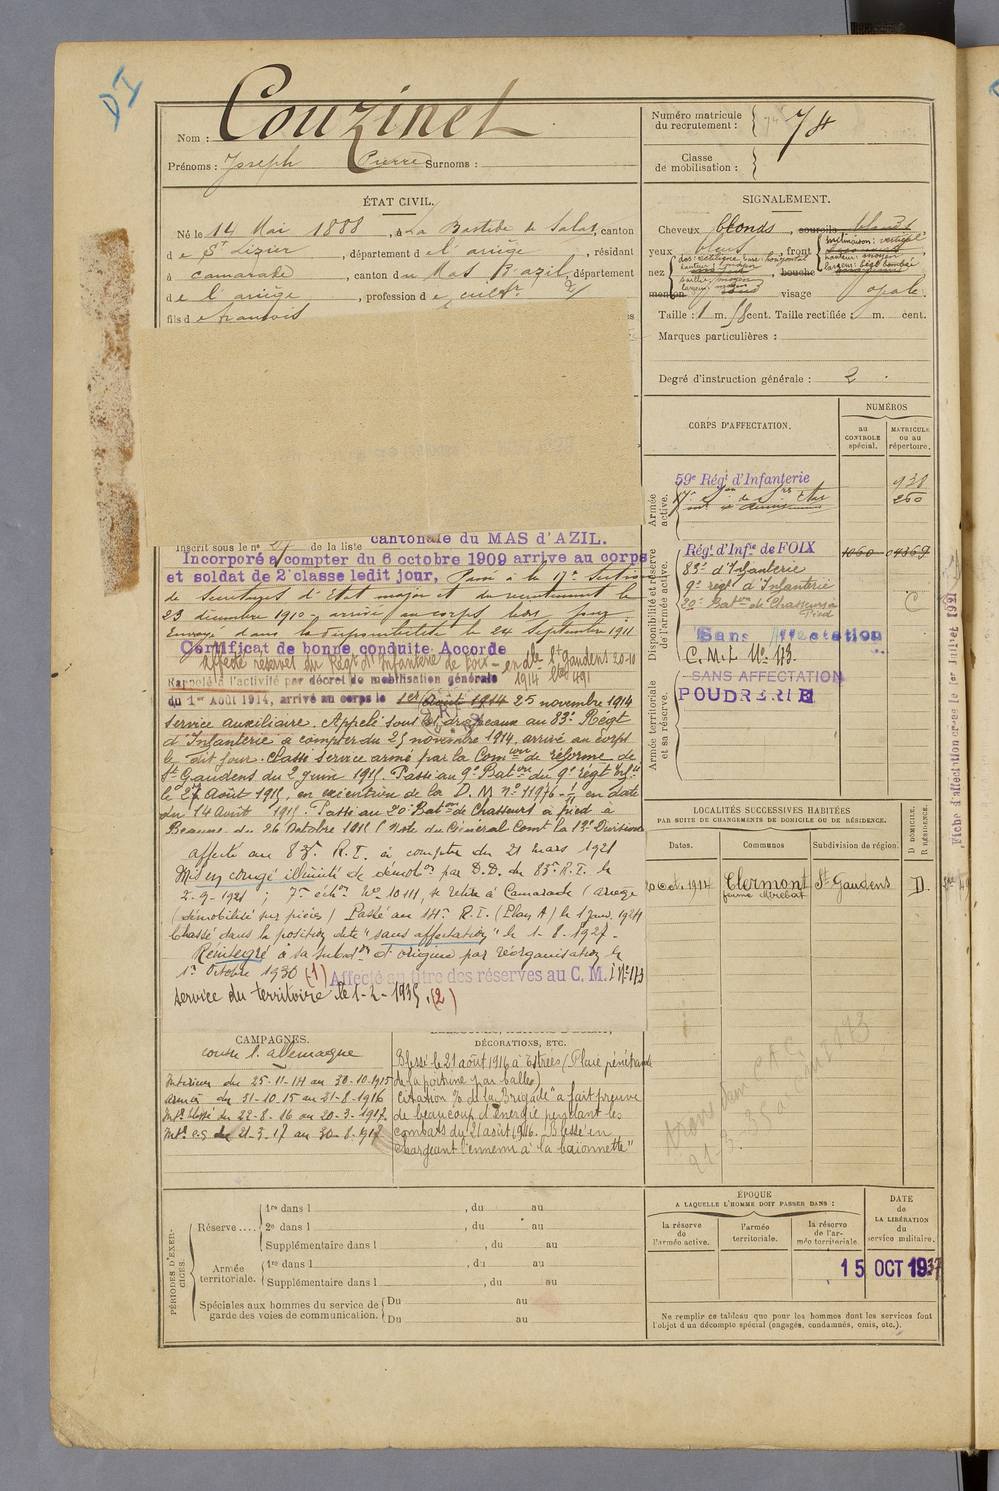 DI
Nom : Couzinet
Prénoms : Joseph Pierre Surnoms :
Numéro matricule
du recrutement : 74
Classe
de mobilisation :
ÉTAT CIVIL.
Né le 14 Mai 1888, à La Bastide de Salat, canton
de St Lizier, département de l'ariège, résidant
à camarade, canton du Mas d'azil, département
de l'ariège, profession de cultr
fils de francois
SIGNALEMENT.
Cheveux blonds, sourcils blonds
yeux bleus, front inclinaison: verticale
hauteur: moyen
largeur: légt bombée
nez dos: rectiligne base: horizontal
bouche
menton visage ovale
Taille : 1 m. cent. Taille rectifiée : m. cent.
Marques particulières :
Degré d'instruction générale : 2.
CORPS D'AFFECTATION.
NUMÉROS
au
CONTROLE
spécial.
MATRICULE
ou au
répertoire.
Armée
active.
59e Régt d'Infanterie 931
260
Disponibilité et réserve
de l'armée active.
Régt d'Infie de FOIX 1060 04369
83e d'Infanterie
9e régt d'Infanterie
20e Baton de Chasseurs à
Pied C
Sans Affectation
C. M. I. No 173
Armée territoriale
et sa réserve.
SANS AFFECTATION
POUDRERIE
Inscrit sous le no 27 de la liste cantonale du MAS d'AZIL.
Incorporé à compter du 6 octobre 1909 arrive au corps
et soldat de 2e classe ledit jour, Passé à la 17e Section
de Secrétaires d'Etat major et du recrutement le
23 décembre 1910 - arrivé au corps ledit jour
Envoyé dans la disponibilité le 24 Septembre 1911
Certificat de bonne conduite Accordé
Affecté réservel du Régt d'Infanterie de Foix - en dle St gaudens 20-10
1914 491
Rappelé à l'activité par décret de mobilisation générale
du 1er Août 1914, arrivé au corps le 1er Août 1914 25 novembre 1914
Service auxiliaire. Appelé sous les drapeaux au 83e Régt
d'Infanterie à compter du 25 novembre 1914, arrivé au corps
le dit jour. Classé service armé par la Comon de réforme de
St Gaudens du 2 juin 1915. Passé au 9e Baton du 9e régt Infie
le 27 Août 1915, en exécution de la D. M no 11976-1/11 en date
du 14 Août 1915. Passé au 20e Baton de Chasseurs à pied à
Beaune du 26 Octobre 1915 (Note du Général Comt la 13e Division
affecté au 83e R. I. à compter du 21 mars 1921
Mis en congé illimité de démobon par D.D. du 83e R.I. le
2-9-1921 ; 7e échon No 10111, se retire à Camarade (Ariège
(démobilisé sur pièces) Passé au 14e R. I. (Plan A) le 1 janv. 1924
Classé dans la position dite "sans affectation" le 1-8-1927.
Réintégré à sa subdon d'origine par réorganisation le
1er Octobre 1930 (1) Affecté au titre des réserves au C. M. I No 173
service du territoire le 1-2-1935. (2)
LOCALITÉS SUCCESSIVES HABITÉES
PAR SUITE DE CHANGEMENTS DE DOMICILE OU DE RÉSIDENCE.
Dates. Communes Subdivision de région.
D DOMICILE.
R RÉSIDENCE.
20 Oct. 1914 Clermont St Gaudens D.
CAMPAGNES.
contre l'allemagne
Intérieur du 25-11-14 au 30-10-1915
Armée du 31-10-15 au 21-8-1916
Intr blessé du 22-8-16 au 20-3-1917.
Intr c.s du 21-3-17 au 30-8-1917
DÉCORATIONS, ETC.
Blessé le 21 août 1916 à Estrées (Plaie pénétrante
de la poitrine par balles)
Citation % de la Brigade "a fait preuve
de beaucoup d'énergie pendant les
combats du 21 août 1916. Blessé en
chargeant l'ennemi à la baïonnette"
PÉRIODES D'EXER-
CICES.
Réserve ....
1re dans l , du au
2e dans l , du au
Supplémentaire dans l , du au
Armée
territoriale.
1re dans l , du au
Supplémentaire dans l , du au
Spéciales aux hommes du service de
garde des voies de communication.
Du au
Du au
ÉPOQUE
A LAQUELLE L'HOMME DOIT PASSER DANS :
la réserve
de
l'armée active.
l'armée
territoriale.
la réserve
de l'ar-
mée territoriale.
DATE
de
LA LIBÉRATION
du
service militaire.
15 OCT 1937
Ne remplir ce tableau que pour les hommes dont les services font
l'objet d'un décompte spécial (engagés, condamnés, omis, etc.).
Fiche d'affectation créée le 1er Juillet 1921